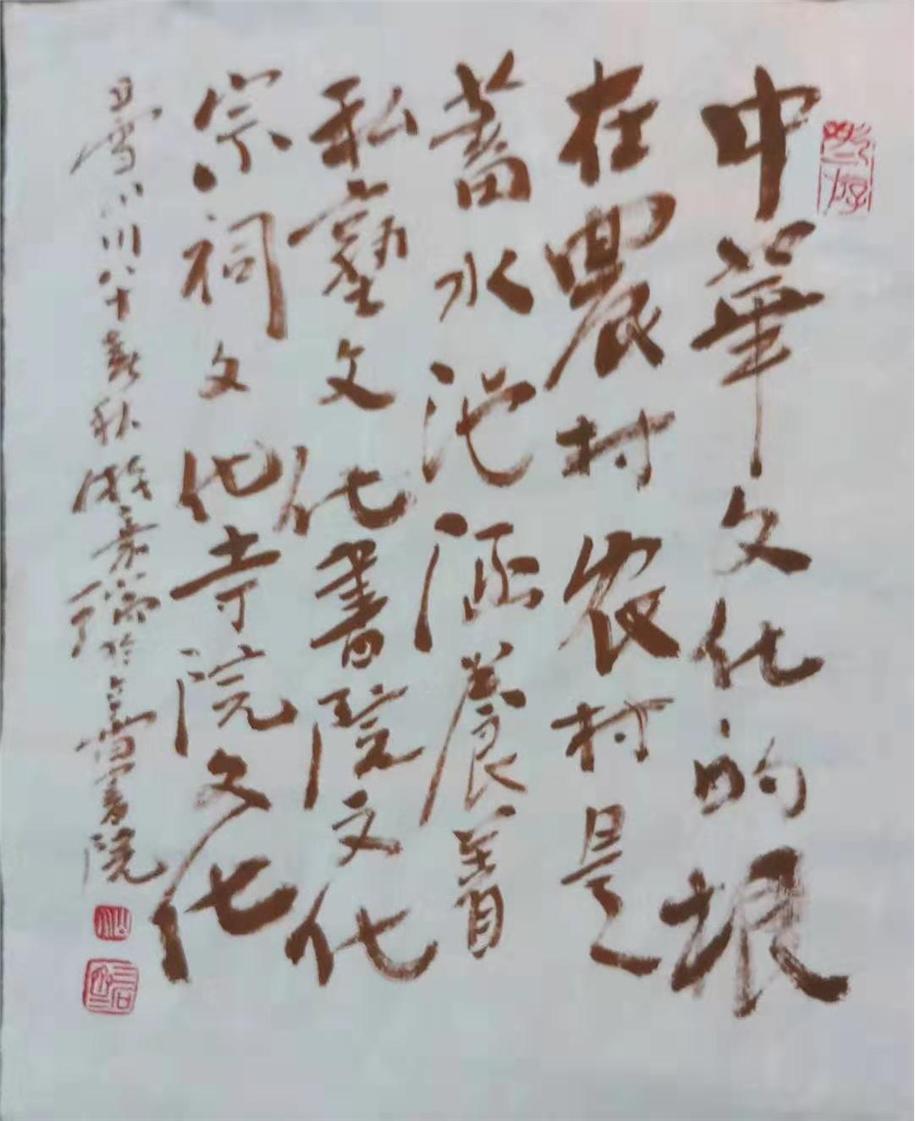 中華文化的根
在農村农村是
蓄水池涵養着
私塾文化書院文化
宗祠文化寺院文化
八十春秋 於 書院